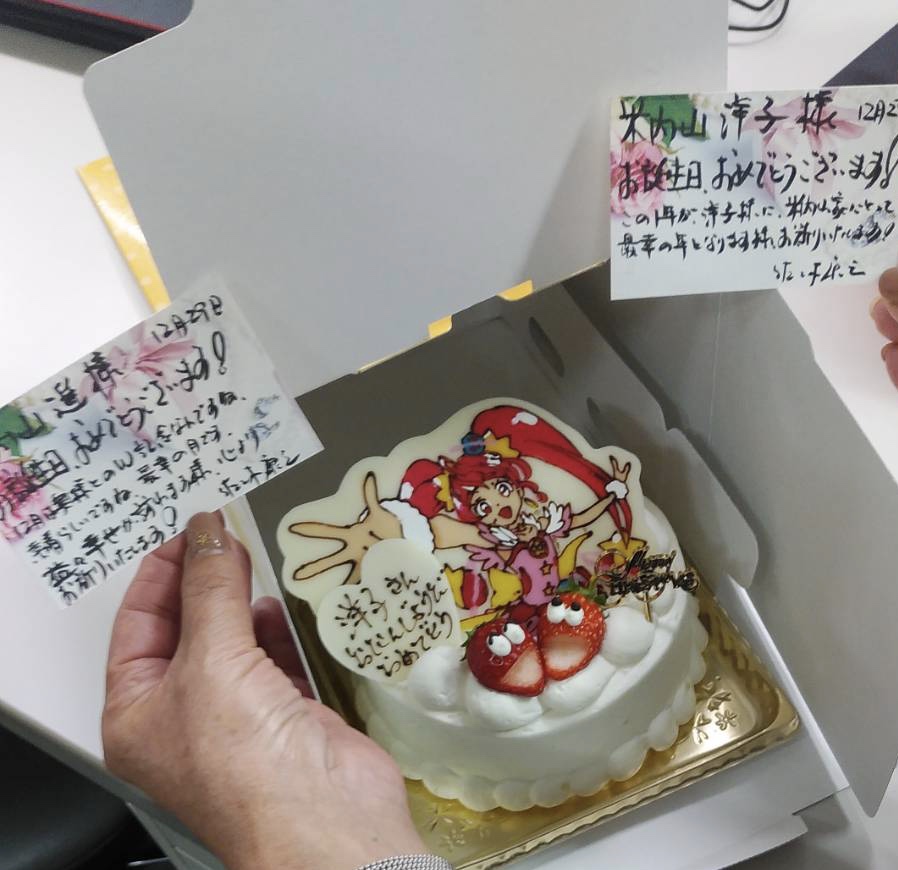 12月29日
山 進 様
誕生日、おめでとうございます!
12月は奥様とのW記念なんですね、
素晴らしいですね、最幸の月です。
益々幸せが訪れます様、心より
お祈りいたします!
米内山 洋子 様 12月2
お誕生日、おめでとうございます!
この1年が、洋子様に、米内山家にとって
最幸の年となります様、お祈りいたします!
洋子さん
おたんじょうびん
おめでとう
Merry
Christmas